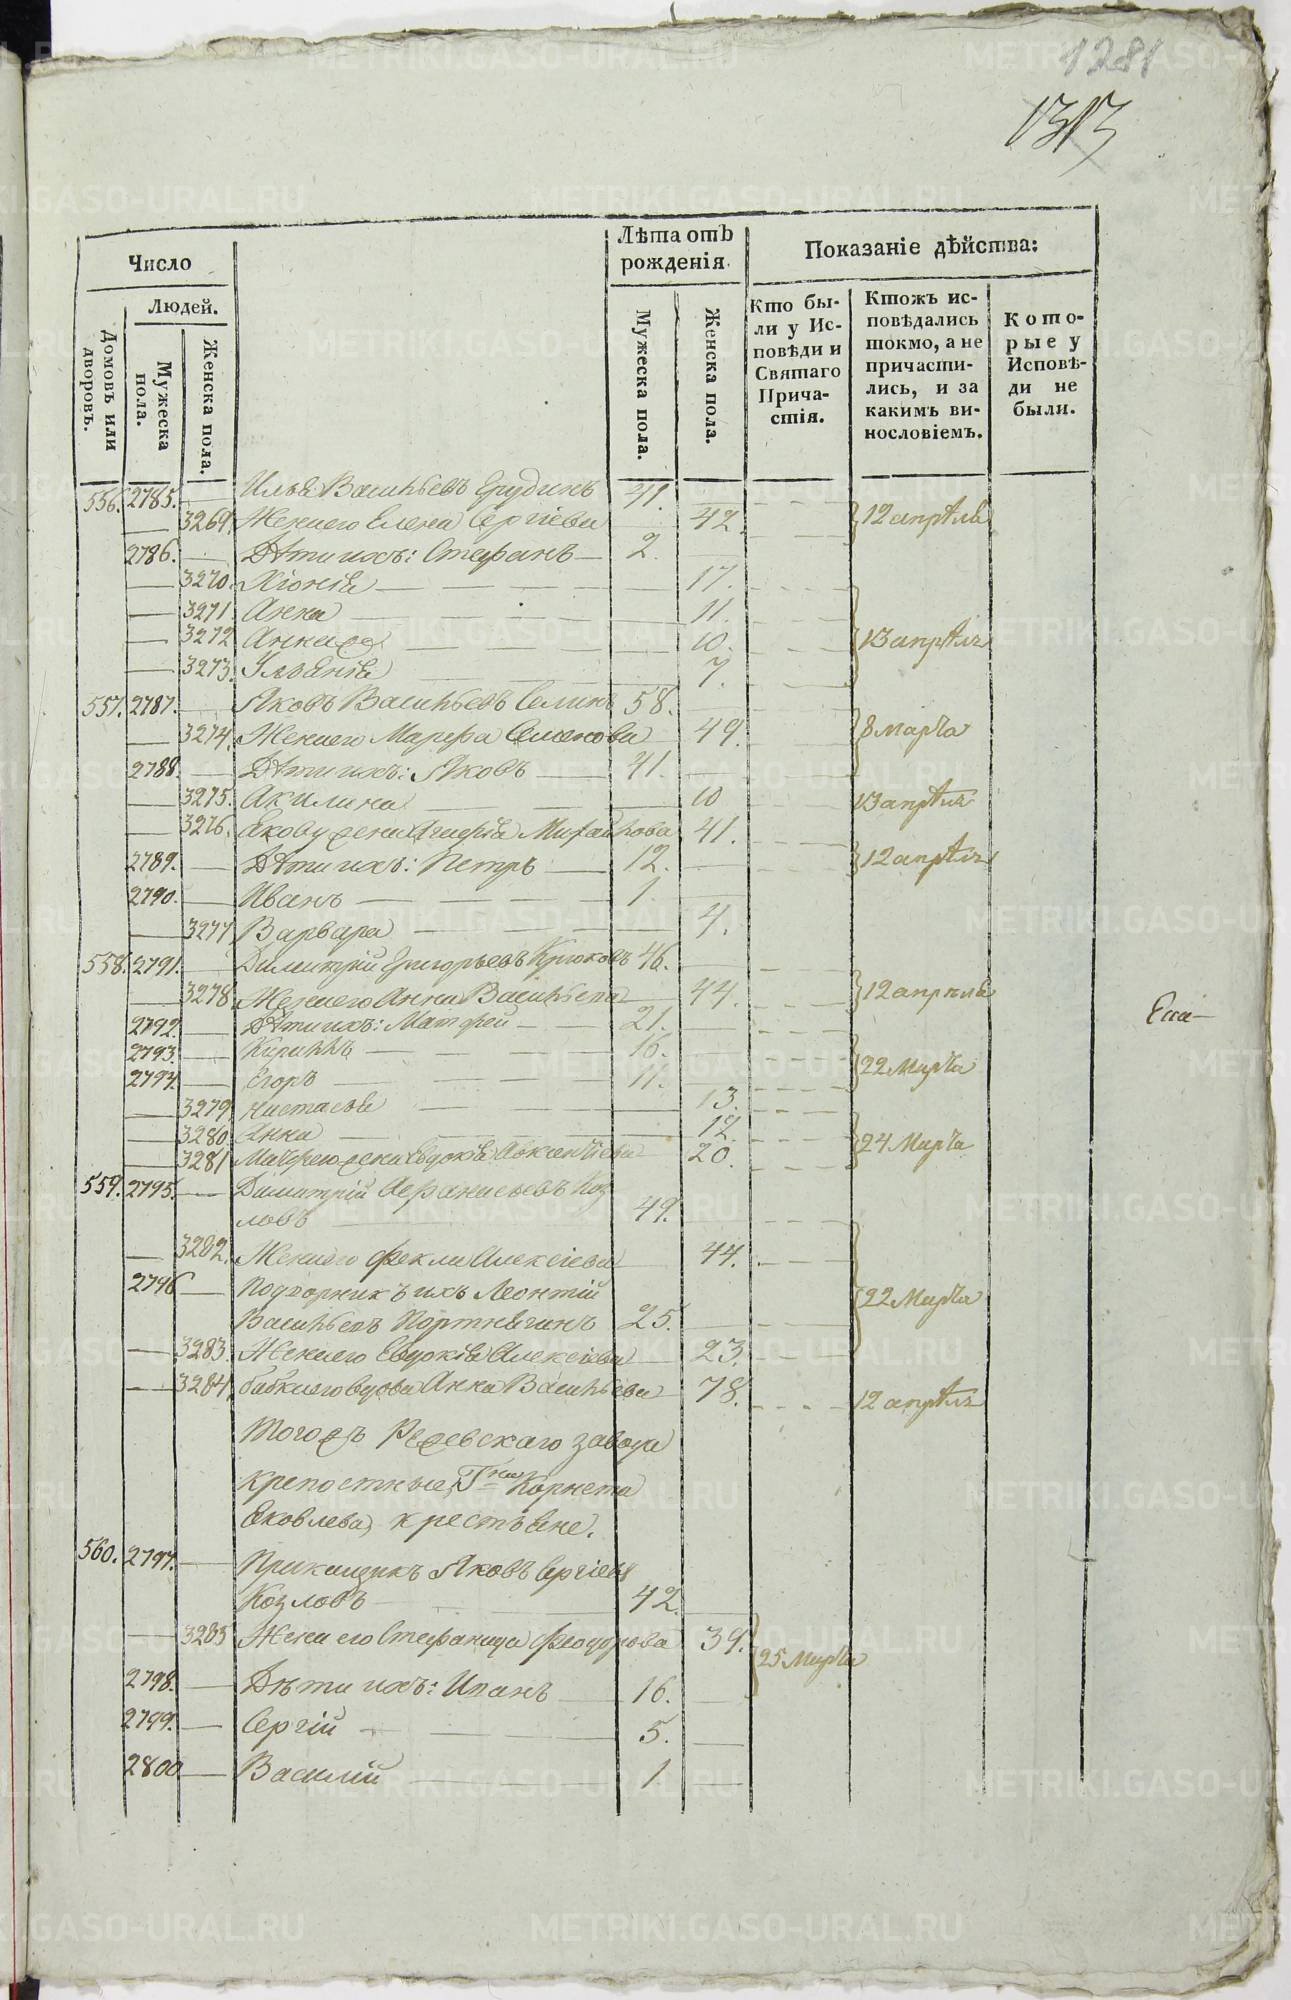 1281
1313
Число
Лѣта отъ рожденія.
Показаніе дѣйства:
Людей.
Домовъ или дворовъ.
Мужеска пола.
Женска пола.
Мужеска пола.
Женска пола.
Кто были у Исповѣди и Святаго Причастія.
Ктожъ исповѣдались токмо, а не причастились, и за какимъ винословіемъ.
Которые у Исповѣди не были.
556. 2785. — Илья Васильевъ Ерудинъ 41.
— 3269. Жена его Елена Сергіева — 42. 12 апрѣля
2786. — Дѣти ихъ: Стефанъ — 2.
— 3270. Хіонія — 17.
— 3271. Анна — 11.
— 3272 — 10. 13 апрѣля
— 3273. Ульянія — 7.
557. 2787. — Яковъ Васильевъ Селинъ 58.
— 3274. Жена его Марфа Семенова — 49. 8 марта
2788. — Дѣти ихъ: Яковъ — 41.
— 3275. Акилина — 10 13 апрѣля
— 3276. Якову жена Агафія Михайлова 41.
2789. — Дѣти ихъ: Петръ — 12. 12 апрѣля
2790. — Иванъ — 1.
— 3277 Варвара — 4.
558. 2791. — Димитрій Григорьевъ Крюковъ 46.
— 3278 Жена его Анна Васильева — 44. 12 апрѣля
2792. — Дѣти ихъ: Матфей — 21.
2793. — Кириллъ — 16. 22 Марта
2794. — Егоръ — 11.
— 3279 Настасья — 13.
— 3280 Анна — 12.
— 3281 Матфею жена Евдокія — 20. 24 Марта
559. 2795. — Димитрій Афанасьевъ Коз
ловъ — 49.
— 3282. Жена его Фекла Алексіева — 44.
2796 — Подворникъ ихъ Леонтій 22 Марта
Васильевъ Портнягинъ 25.
— 3283. Жена его Евдокія Алексіева — 23.
— 3284. бабка его вдова Анна Васильева — 78. 12 апрѣля
Тогожъ Режевскаго завода
крепостные, Гна Корнета
Яковлева, крестьяне.
560. 2797. — Прикащикъ Яковъ Сергіевъ
Козловъ — 42.
— 3285 Жена его Стефанида Феодорова 39. 25 Марта
2798. — Дѣти ихъ: Иванъ — 16.
2799. — Сергій — 5.
2800 — Василій — 1
METRIKI.GASO-URAL.RU